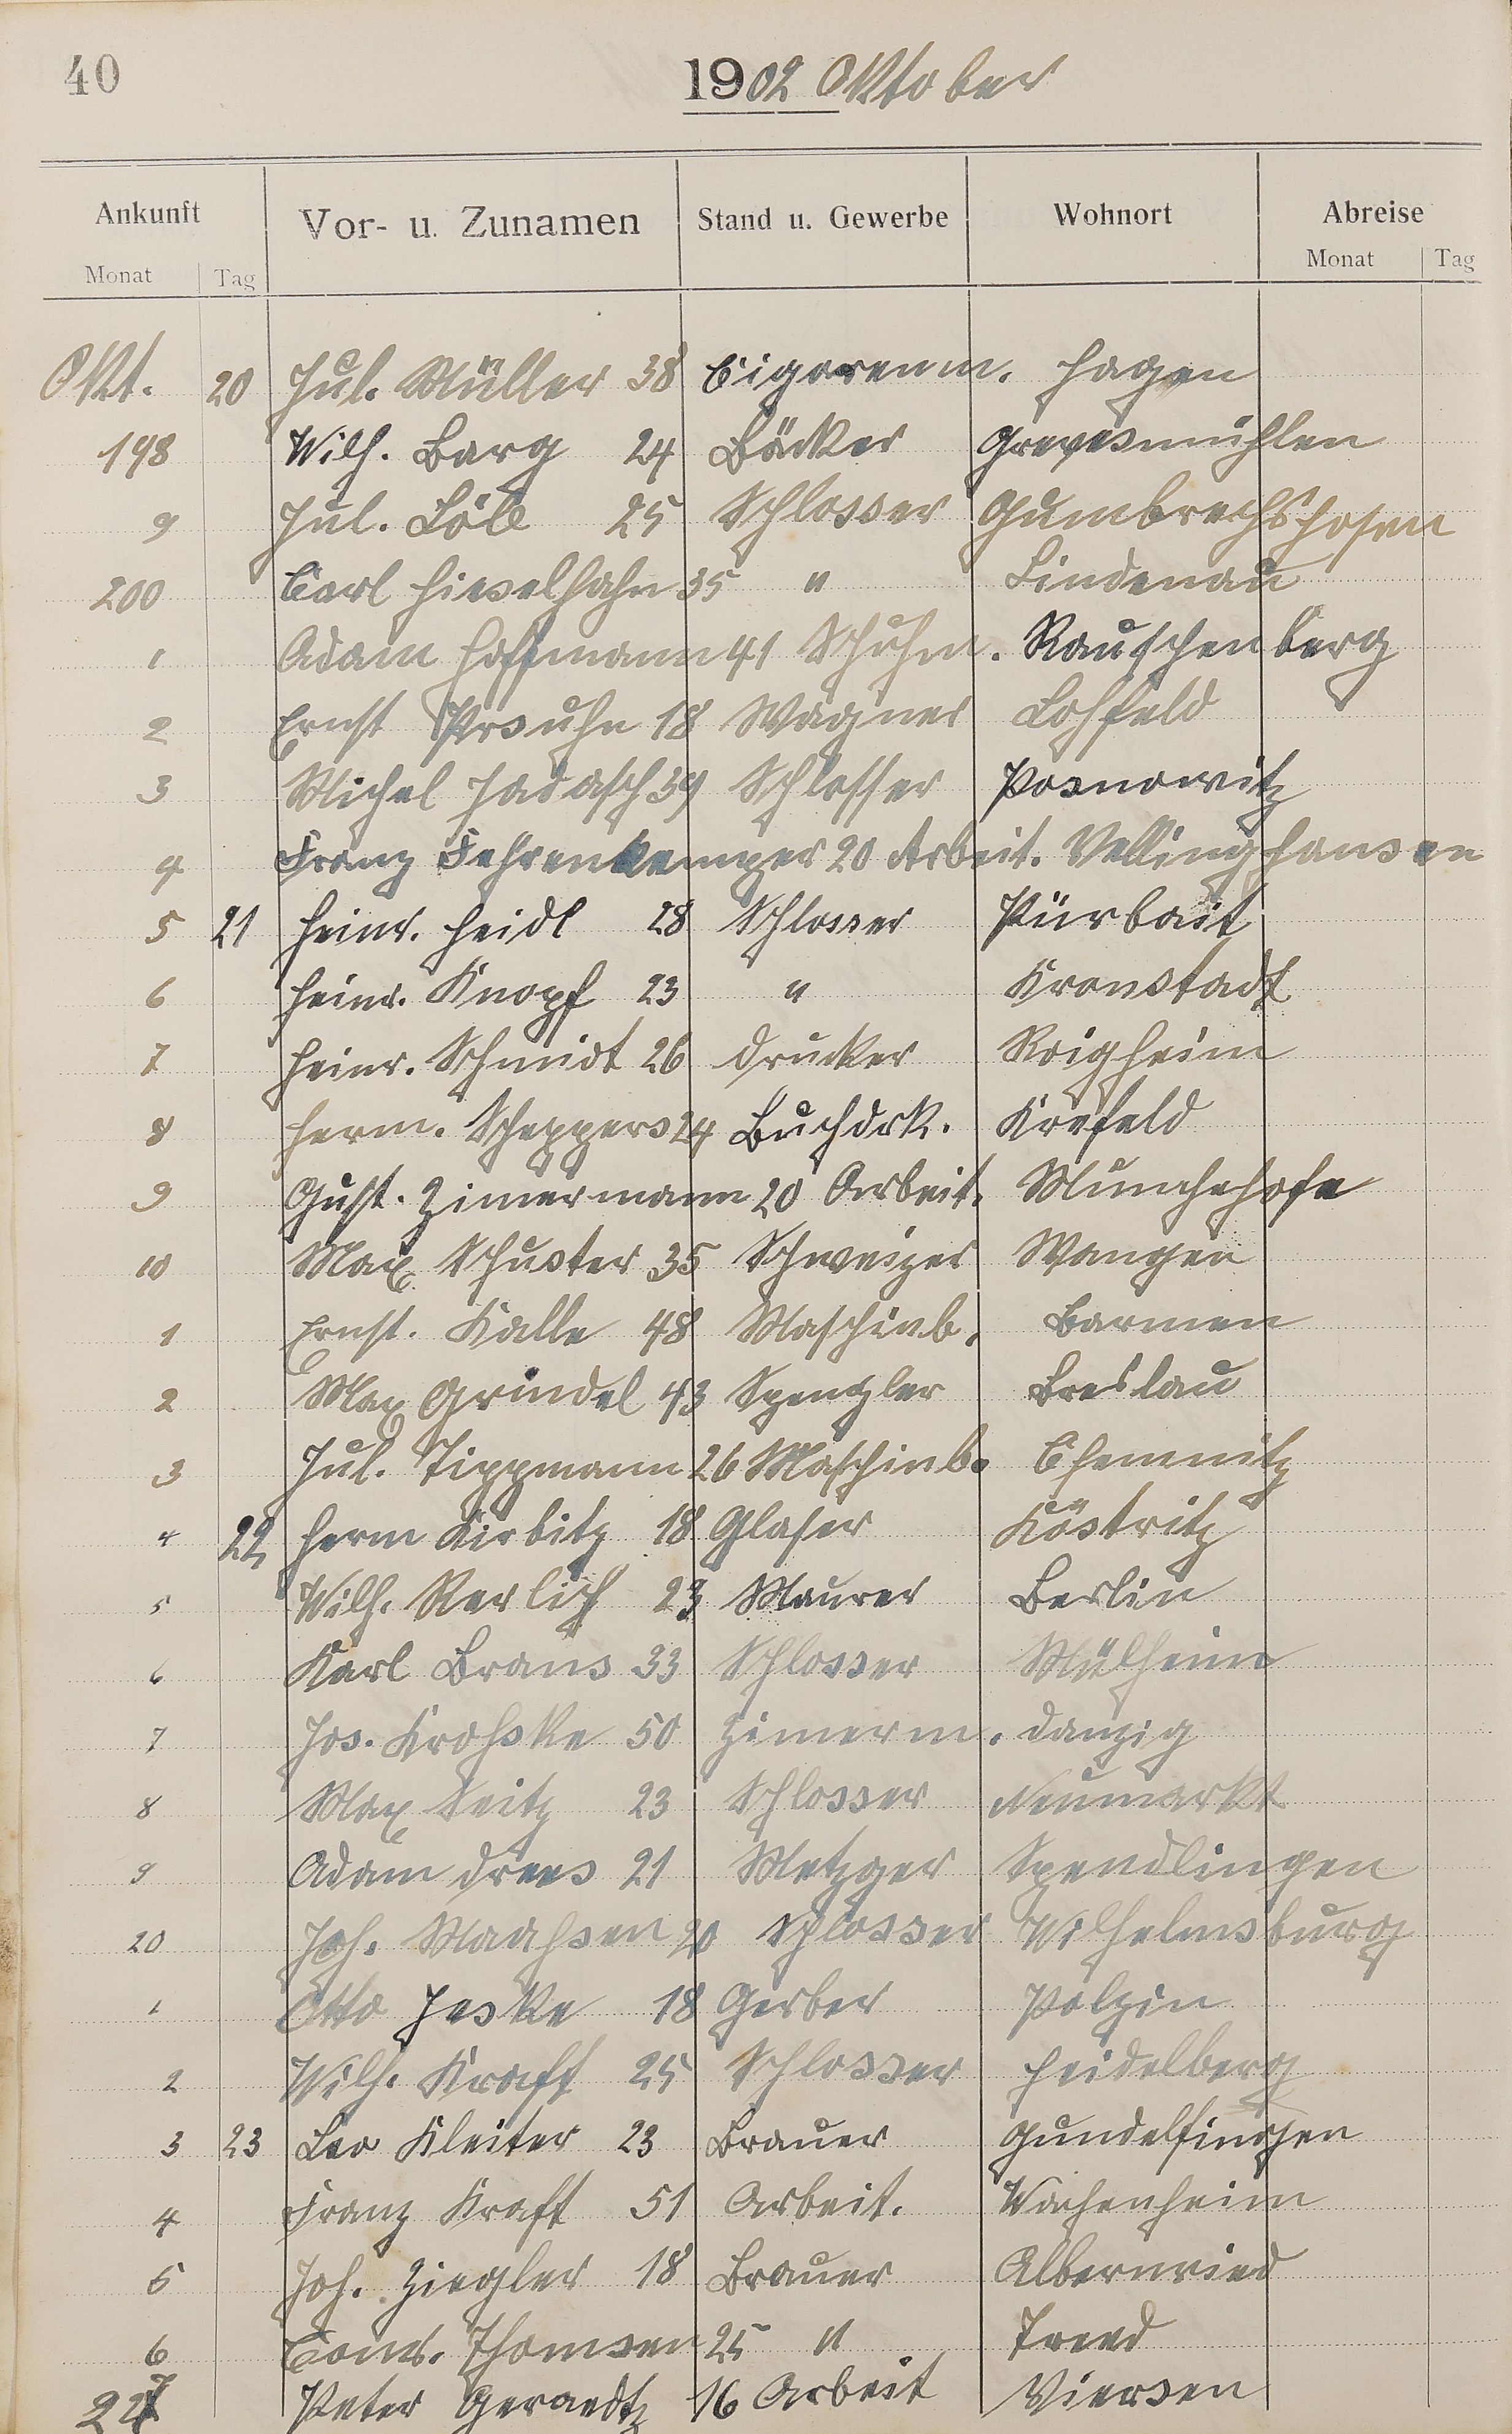 40
1902 Oktober
Ankunft Vor- u. Zunamen Stand u. Gewerbe Wohnort Abreise
Monat Tag Monat Tag
Okt. 20 Jul. Müller 38 Cigarenm. Hagen
198 Wilh. Barg 24 Bäcker Grevesmühlen
9 Jul. Löb 25 Schlosser Gumbrechtshofen
200 Carl Hieselhahn 35 " Lindenau
1 Adam Hoffmann 41 Schuhm. Rauschenberg
2 Ernst Prsuhn 18 Wagner Lohfeld
3 Michel Jadasch 39 Schlosser Posnowitz
4 Franz Fehrenkemper 20 Arbeit. Vellinghausen
5 21 Heinr. Heidl 28 Schlosser
6 Heinr. Knopf 23 " Kronstadt
7 Heinr. Schmidt 26 Drucker Roigheim
8 Herm. Scheppers 24 Buchdrk. Krefeld
9 Gust. Zimermann 20 Arbeit. Munchehofe
10 Max Schuster 35 Schweizer Wangen
1 Ernst. Kalle 48 Maschinb. Barmen
2 Max Grindel 43 Spengler Breslau
3 Jul. Tippmann 26 Maschinb. Chemnitz
4 22 Herm Kirbitz 18 Glaser Köstritz
5 Wilh. Rerlich 23 Maurer Berlin
6 Karl Brans 33 Schlosser Mülheim
7 Jos. Krohske 50 Zimerm. Danzig
8 Max Seitz 23 Schlosser Neumarkt
9 Adam Drees 21 Metzger Spendlingen
20 Joh. Maahsen 20 Schlosser Wilhelmsburg
1 Otto Jeske 18 Gerber Polzin
2 Wilh. Kraft 25 Schlosser Heidelberg
3 23 Leo Kleiter 23 Brauer Gundelfingen
4 Franz Kraft 51 Arbeit. Wachenheim
5 Joh. Ziegler 18 Brauer Albernried
6 Conr. Thomsen 25 " Treed
227 Peter Geraedtz 16 Arbeit Viersen